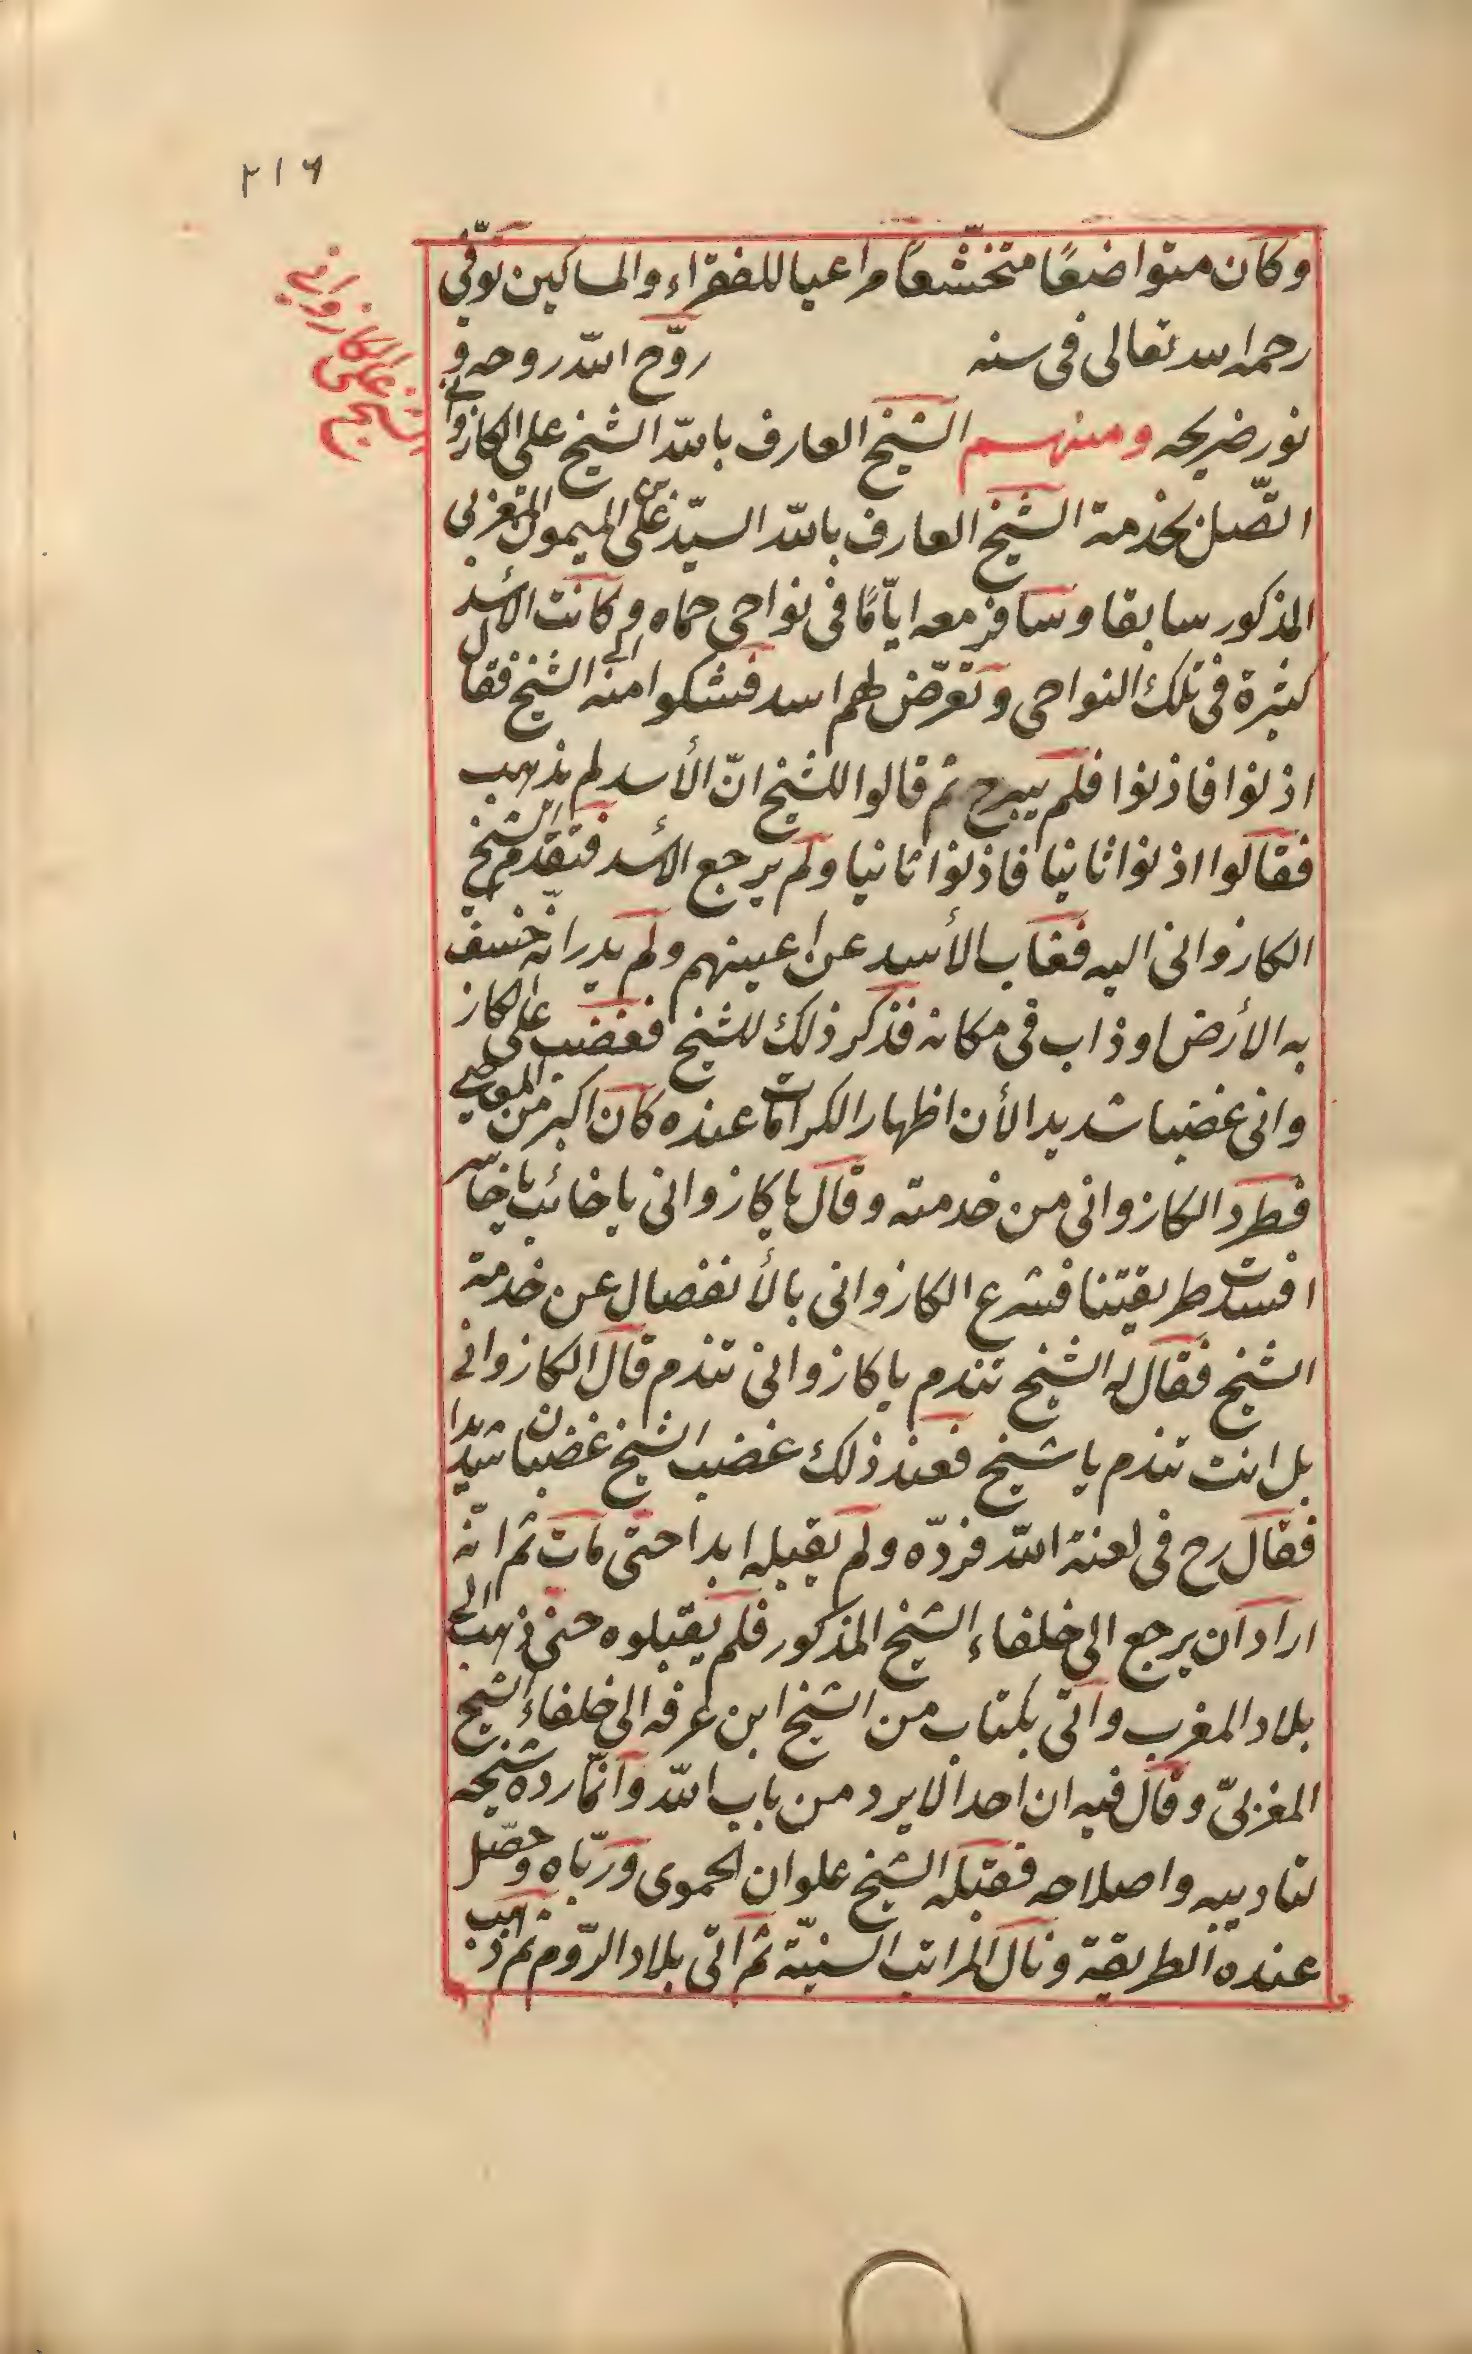 ٢١٦
الشيخ على الكازوانى
وكان متواضعًا متخشّعًا مراعيا للفقراء والمساكين توفّى
رحمه الله تعالى فى سنه روّح اللّه روحه و
نور ضريحه ومنهم الشيخ العارف باللّه الشيخ على الكازوانى
اتّصل بخدمة الشيخ العارف باللّه السيّد على بن الميمون المغربى
المذكور سابقا وسافر معه ايّامًا فى نواحى حماه وكانت الأسد
كثيرة فى تلك النواحى وتعرّض لهم اسد فشكوا منه الى الشيخ فقال
اذنوا فاذنوا فلم يبرح ثم قالوا للشيخ انّ الأسد لم يذهب
فقالوا اذنوا ثانيا فاذنوا ثانيا ولم يرجع الأسد فتقدم الشيخ
الكازوانى اليه فغاب الأسد عن اعينهم ولم يدر انّه خسف
به الأرض او ذاب فى مكانه فذكر ذلك للشيخ فغضب على الكاز
وانى غضبا شديدا لأن اظهار الكرامات عنده كان اكبر من المعاصى
فطرد الكازوانى من خدمته وقال يا كازوانى يا خائب يا خاسر
افسدت طريقتنا فشرع الكازوانى بالأنفصال عن خدمة
الشيخ فقال له الشيخ تندم يا كازوانى تندم قال الكازوانى
بل انت تندم يا شيخ فعند ذلك غضب الشيخ غضبا شديدا
فقال رح فى لعنة اللّه فردّه ولم يقبله ابدا حتى مات ثم انّه
اراد ان يرجع الى خلفاء الشيخ المذكور فلم يقبلوه حتى ذهب الى
بلاد المغرب واتى بكتاب من الشيخ ابن عرفه الى خلفاء الشيخ
المغربىّ وقال فيه ان احدا لا يرد من باب اللّه وانّما رده شيخه
لتاديبه واصلاحه فقبله الشيخ علوان الحموى وربّاه وحصّل
عنده الطريقة ونال المراتب السنيّة ثم اتى بلاد الرّوم ثم ذهب